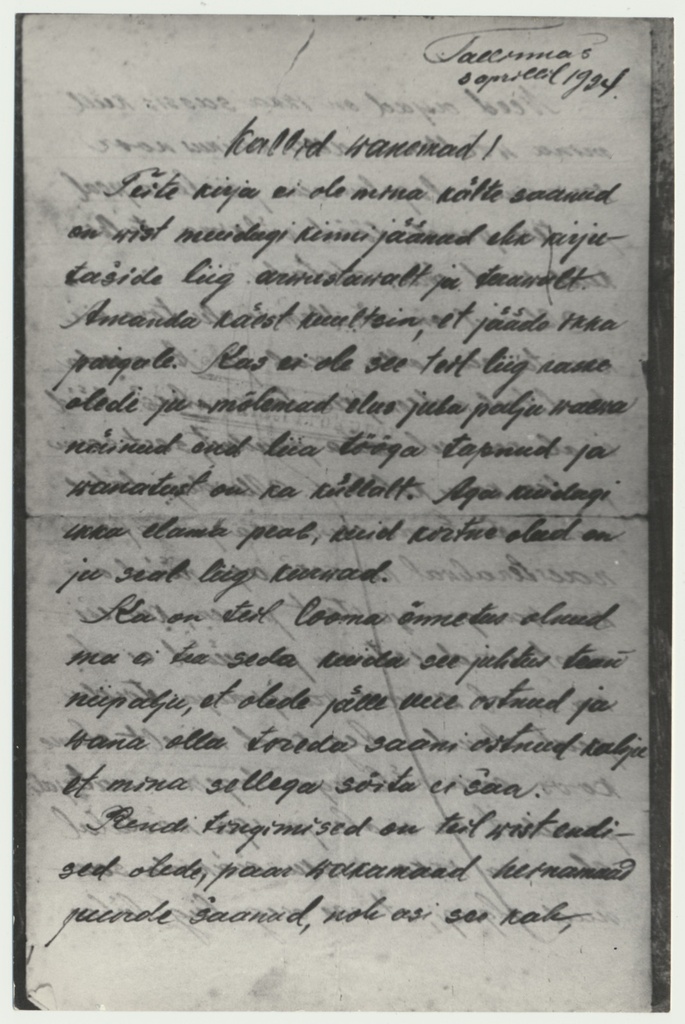 Tallinnas
3 aprillil 1924.
Kallid wanemad!
Teite kirja ei ole mina kätte saanud
on wist muidagi kinni jäänud ehk kirju-
taside liig arwustawalt ja
Amanda käest kuulsin, et jääde ikka
paigale. Kas ei ole see teil liig raske
oledi ju mõlemad elus juba palju waewa
näinud end liia tööga tapnud ja
wanadust on ka küllalt. Aga kuidagi
ikka elama peab, kuid kohad on
ju seal liig kurwad.
Ka on teil looma õnnetus olnud
ma ei tea seda kuida see juhtus tean
niipalju, et olede jälle uue ostnud ja
wana olla toreda saani ostnud kahju
et mina sellega sõita ei saa.
Rendi tingimised on teil wist endi-
sed olede, paar wakamaad heinamaad
juurde saanud, noh asi see kah,